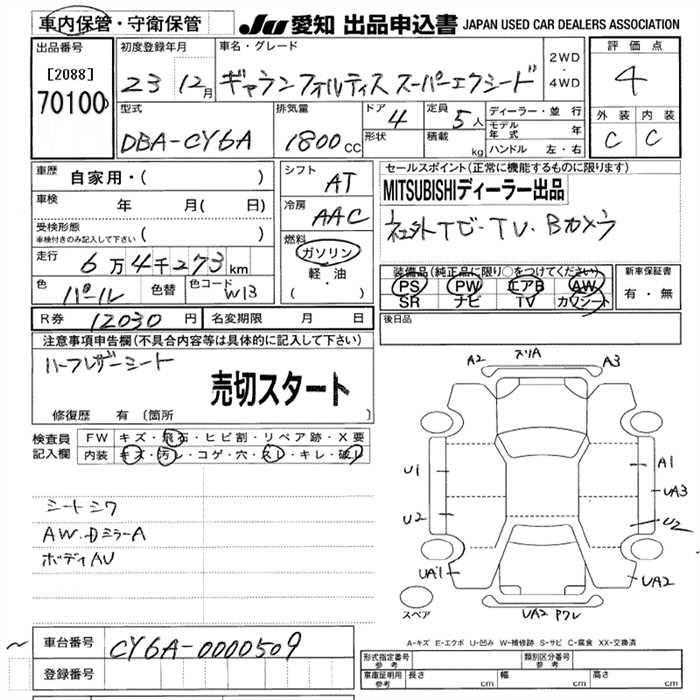 車内保管・守衛保管
JU 愛知 出品申込書 JAPAN USED CAR DEALERS ASSOCIATION
出品番号
[2088]
70100
初度登録年月
23 12月
車名・グレード
ギャランフォルティス スーパーエクシード
2WD
・
4WD
評価点
4
外装 内装
C C
型式
DBA-CY6A
排気量
1800cc
ドア 4
形状
定員 5人
積載 kg
ディーラー・並行
モデル年式 年
ハンドル 左・右
車歴 自家用・( )
車検 年 月( 日)
受検形態
車検付きのみ記入して下さい ( )
走行 6万4千273km
色 パール 色替 色コード W13
シフト AT
冷房 AAC
燃料
ガソリン
軽・油
・( )
セールスポイント(正常に機能するものに限ります)
MITSUBISHIディーラー出品
社外ナビ・TV・Bカメラ
装備品(純正品に限り○をつけてください)
PS PW エアB AW
SR ナビ TV カワシート
新車保証書
有・無
R券 12030円 名変期限 月 日
後日品
注意事項申告欄(不具合内容等は具体的に記入して下さい)
ハーフレザーシート
売切スタート
修復歴 有(箇所 )
検査員記入欄
FW キズ・飛石・ヒビ割・リペア跡・X要
内装 キズ・汚レ・コゲ・穴・スレ・キレ・破レ
シートシワ
AW.DミラーA
ボディAU
A2 スリA A3
U1 A1
UA3
U2 U2
UA1 UA2
スペア
UA2 Pワレ
A-キズ E-エクボ U-凹み W-補修跡 S-サビ C-腐食 XX-交換済
車台番号 CY6A-0000509
登録番号
形式指定番号
参考
類別区分番号
参考
車庫証明用
参考
長さ cm 幅 cm 高さ cm